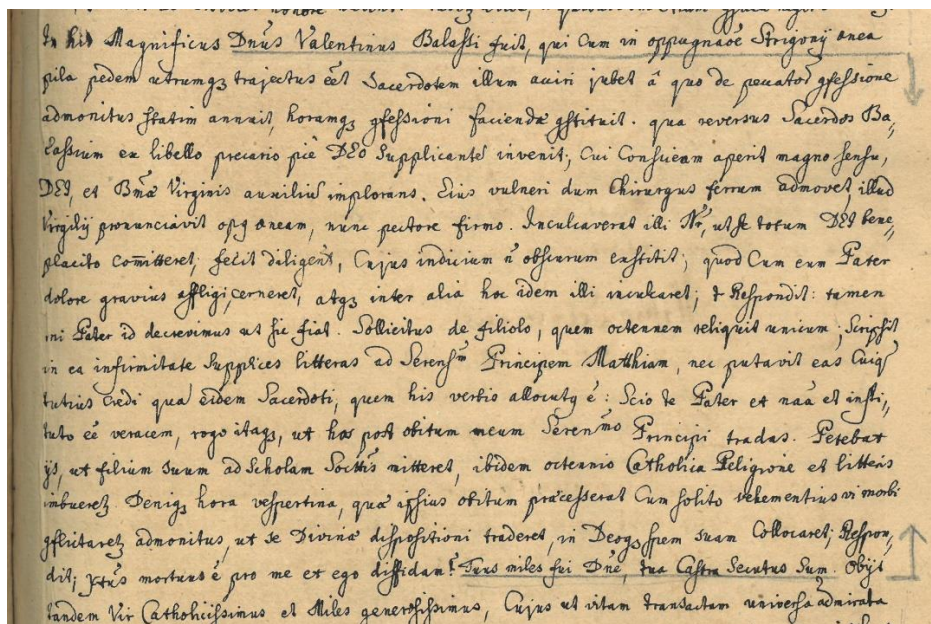 In his Magnificus Dnus Valentinus Balassi fuit, qui Cum in oppugnaõe Strigonij ænea
pila pedem utrumq; trajectus eet Sacerdotem illum acciri jubet â quo de peccator gfessione
admonitus statim annuit, horamq; gfessioni faciendæ gstituit. qua reversus Sacerdos Ba„
lassium ex libello precario pie DEO Supplicante invenit; Cui Consciam aperit magno sensu,
DEI, et Bmæ Virginis auxiliu implorans. Eius vulneri dum Chirurgus ferrum admovet, illud
Virgilij pronunciavit opg aneam, nunc pectore firmo. Inculcaverat illi Nr, ut se totum DEI bene„
placito comitteret; fecit diligent, Cujus indicium n obscurum exstitit; quod Cum eum Pater
dolore gravius affligi cerneret, atq; inter alia hoc idem illi inculcaret; Respondit: tamen
mi Pater id decrevimus ut sic fiat. Sollicitus de filiolo, quem octennem reliquit unicum; Scripsit
in ea infirmitate Supplices litteras ad Serenssm Principem Matthiam, nec putavit eas Cuiq
tutius credi qua eidem Sacerdoti, quem his verbis allocutg e: Scio te Pater et naa et insti„
tuto ee veracem, rogo itaq; ut has post obitum meum Serenmo Principi tradas. Petebat
ijs, ut filium suum ad Scholam Socttis mitteret, ibidem octennio Catholica Religione et litteris
imbueret. Deniq; hora vespertina, quæ ipsius obitum præcesserat Cum solito vehementius vi morbi
gflictaret, admonitus, ut se Divinæ dispositioni traderet, in Deoq; spem suam Collocaret; Respon„
dit; xtus mortuus e pro me et ego diffidam? Tuus miles fui Dne, tua Castra Secutus Sum. Obijt
tandem Vir Catholicissimus et Miles generosissimus, Cujus ut vitam transactam universa admirata